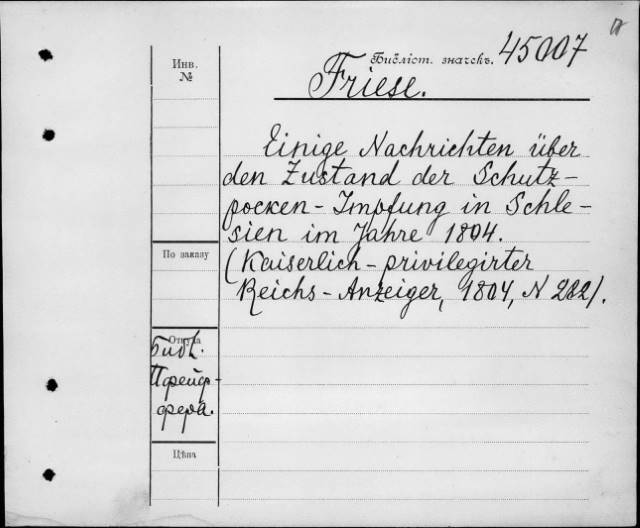 Инв.
№
Библіот. значекъ.
45007
Friese.
Einige Nachrichten über
den Zustand der Schutz-
pocken-Impfung in Schle-
sien im Jahre 1804.
(Kaiserlich-privilegirter
Reichs-Anzeiger, 1804, N 282).
По заказу
Откуда
Библ.
Пфейф-
фера.
Цѣна